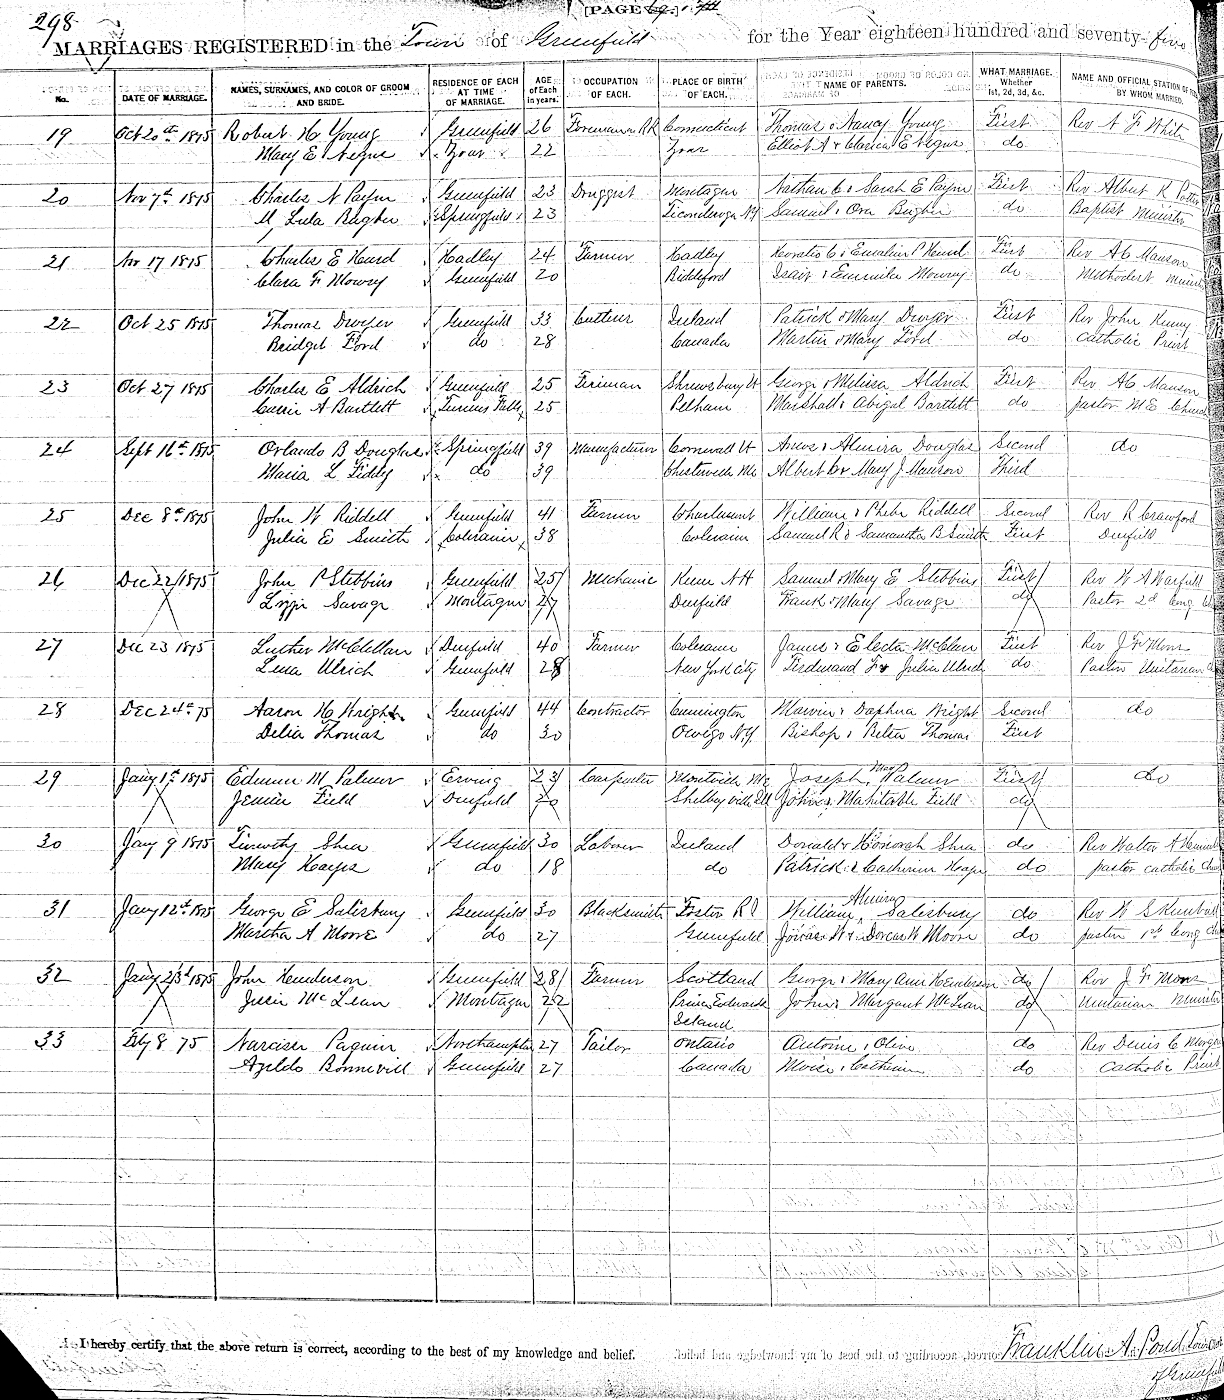 298
[PAGE
MARRIAGES REGISTERED in the Town of Greenfield for the Year eighteen hundred and seventy-five
No. DATE OF MARRIAGE. NAMES, SURNAMES, AND COLOR OF GROOM AND BRIDE. RESIDENCE OF EACH AT TIME OF MARRIAGE. AGE of Each in years. OCCUPATION OF EACH. PLACE OF BIRTH OF EACH. NAME OF PARENTS. WHAT MARRIAGE. Whether 1st, 2d, 3d, &c. NAME AND OFFICIAL STATION OF BY WHOM MARRIED.
19 Oct 20th 1875 Robert H Young Greenfield 26 Foreman RR Connecticut Thomas & Nancy Young First Rev N F White
Mary E Negus Zoar 22 Zoar Elliot A & Clarica E Negus do
20 Nov 7th 1875 Charles N Payne Greenfield 23 Druggist Montague Nathan C & Sarah E Payne First Rev Albert K Potter
M Lula Bugbee Springfield 23 Ticonderoga NY Samuel & Ora Bugbee do Baptist Minister
21 Nov 17 1875 Charles E Heard Hadley 24 Farmer Hadley Horatio C & Emeline P Heard First Rev AC Manson
Clara F Mowry Greenfield 20 Biddeford Isair & Mowry do Methodest Minis
22 Oct 25 1875 Thomas Dwyer Greenfield 33 Cutler Ireland Patrick & Mary Dwyer First Rev John Kenny
Bridget Ford do 28 Canada Martin & Mary Ford do Catholic Priest
23 Oct 27 1875 Charles E Aldrich Greenfield 25 Fireman Shrewsbury Vt George & Melissa Aldrich First Rev AC Manson
Carrie A Bartlett Turners Falls 25 Pelham Marshall & Abigal Bartlett do pastor ME Church
24 Sept 16th 1875 Orlando B Douglas Springfield 39 Manufacturer Cornwall Vt Amos & Almira Douglas Second do
Maria L Fiddy do 39 Chesterville Me Albert C & Mary J Manson Third
25 Dec 8th 1875 John W Riddell Greenfield 41 Farmer Charlemont William & Phebe Riddell Second Rev R Crawford
Julia E Smith Colerain 38 Colerain Samuel R & Samantha B Smith First Deerfield
26 Dec 22/1875 John P Stebbins Greenfield 25 Mechanic Keene NH Samuel & Mary E Stebbins First Rev W A Warfield
Lizzie Savage Montague 27 Deerfield Frank & Mary Savage do Pastor 2d Cong
27 Dec 23 1875 Luther McClellan Deerfield 40 Farmer Colerain James & Electa McClen First Rev J F Moors
Lena Ulrich Greenfield 28 New York City Ferdinand F & Julia Ulrich do Pastor Unitarian
28 Dec 24th 75 Aaron H Wright Greenfield 44 Contractor Cummington Marvin & Daphna Wright Second do
Delia Thomas do 30 Owego N.Y. Bishop & Relta Thomas First
29 Jany 1st 1875 Edmun M Palmer Erving 23 Carpenter Montville Me Joseph Mary Palmer First do
Jennie Field Deerfield 20 Shelbyville Ill John & Mahitable Field do
30 Jany 9 1875 Timothy Shea Greenfield 30 Laborer Ireland Donald & Honorah Shea do Rev Walter A
Mary Hayes do 18 do Patrick & Catherine Hayes do pastor catholic
31 Jany 12th 1875 George E Salisbury Greenfield 30 Blacksmith Foster RI William Almira Salisbury do Rev W S Kimball
Martha A Moore do 27 Greenfield Jonas W & Dorcas W Moore do pastor 1st Cong
32 Jany 23d 1875 John Henderson Greenfield 28 Farmer Scotland George & Mary Ann Henderson do Rev J F Moors
Jessie McLean Montague 22 Prince Edwards John & Margaret McLean do Unitarian Minister
Island
33 Feby 8 75 Narcisse Paquin Northampton 27 Tailor Ontario Antoine & Olive do Rev Denis C Morgan
Azeldo Bonnevill Greenfield 27 Canada Moise & Catherine do Catholic Priest
I hereby certify that the above return is correct, according to the best of my knowledge and belief. Franklin A. Pond, Town
of Greenfield